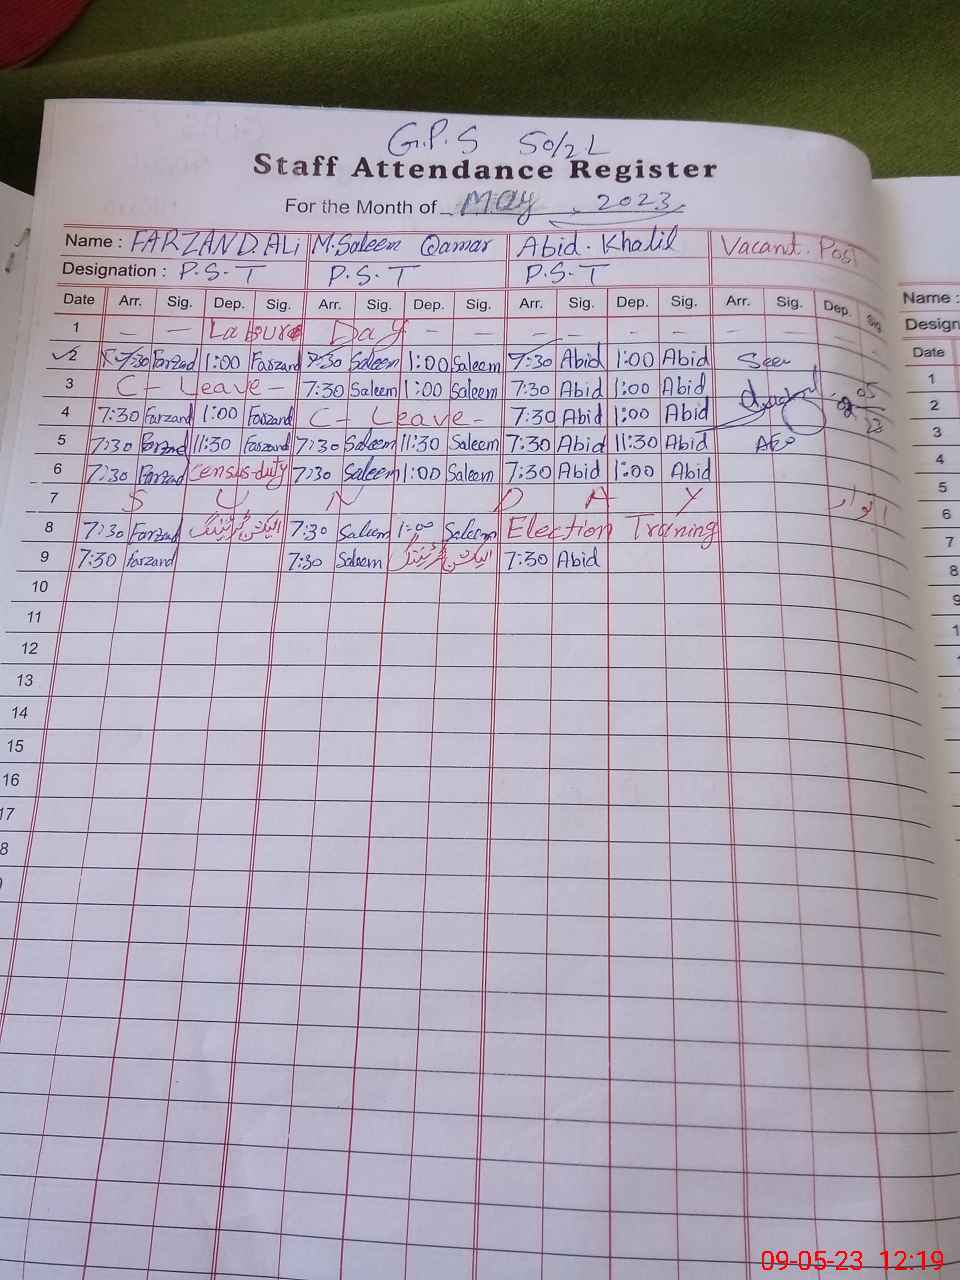 G.P.S 50/2L
Staff Attendance Register
For the Month of May, 2023
Name : FARZAND. ALi M. Saleem Qamar Abid. Khalil Vacant. Post
Designation : P.S.T P.S.T P.S.T
Date Arr. Sig. Dep. Sig. Arr. Sig. Dep. Sig. Arr. Sig. Dep. Sig. Arr. Sig. Dep. Sig.
1 — — Labour Day — — — — — — — — —
2 7:30 Farzad 1:00 Farzand 7:30 Saleem 1:00 Saleem 7:30 Abid 1:00 Abid Seen
3 C- Leave - 7:30 Saleem 1:00 Saleem 7:30 Abid 1:00 Abid
4 7:30 Farzand 1:00 Farzand C- Leave - 7:30 Abid 1:00 Abid
5 7:30 Farzad 11:30 Farzand 7:30 Saleem 11:30 Saleem 7:30 Abid 11:30 Abid AEO
6 7:30 Farzad Census-duty 7:30 Saleem 1:00 Saleem 7:30 Abid 1:00 Abid
7 S U N D A Y اتوار
8 7:30 Farzand الیکشن ٹریننگ 7:30 Saleem 1:00 Saleem Election Training
9 7:30 Farzand 7:30 Saleem الیکشن ٹریننگ 7:30 Abid
10
11
12
13
14
15
16
17
8
Name :
Design
Date
1
2
3
4
5
6
7
8
9
1
09-05-23 12:19